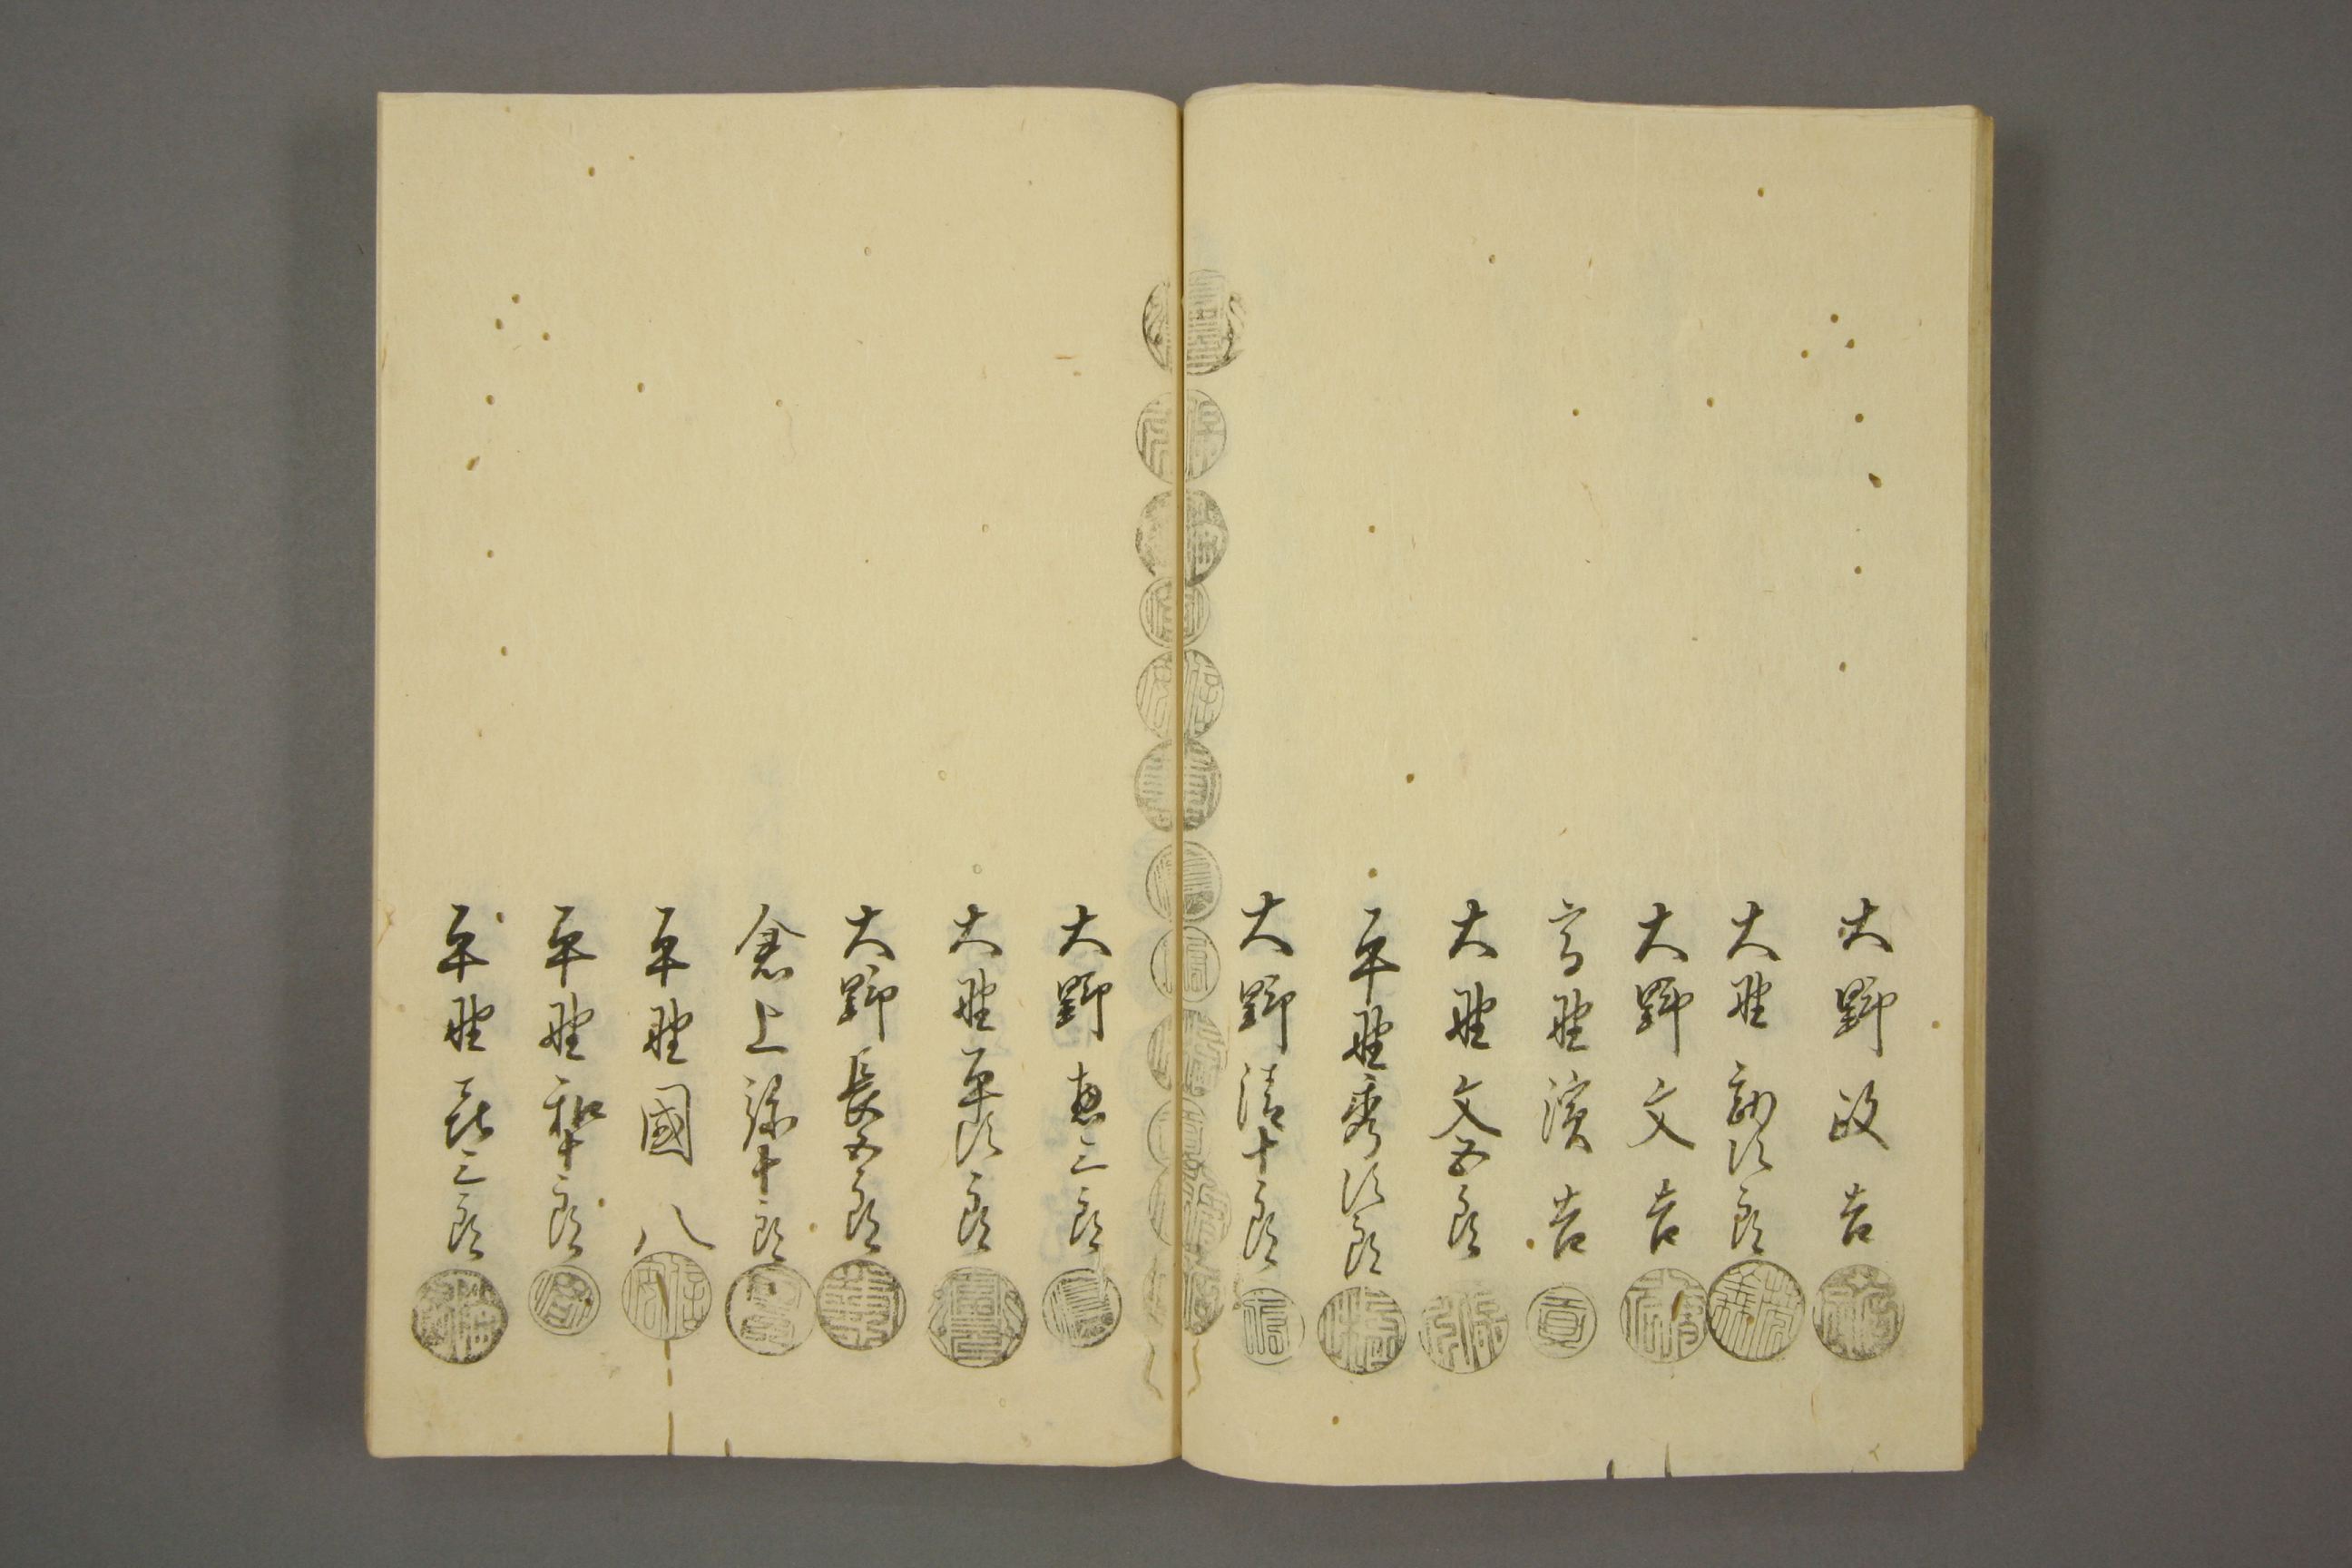 大野政吉
大野初次郎
大野文吉
高野濱吉
大野文五郎
平野秀次郎
大野清十郎
大野恵三郎
大野平次郎
大野長五郎
倉上弥十郎
平野國八
平野和十郎
平野長三郎